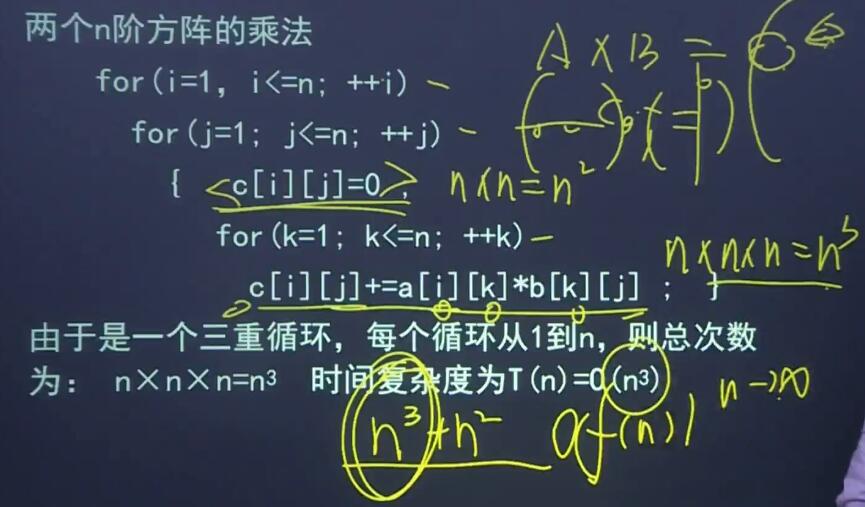 两个n阶方阵的乘法
A × B =
for(i=1, i<=n; ++i)
for(j=1; j<=n; ++j)
{ c[i][j]=0 ; n×n=n²
for(k=1; k<=n; ++k)
n×n×n=n³
c[i][j]+=a[i][k]*b[k][j] ; }
由于是一个三重循环，每个循环从1到n，则总次数
为： n×n×n=n³ 时间复杂度为T(n)=O(n³)
n→∞
n³+n² O(f(n))